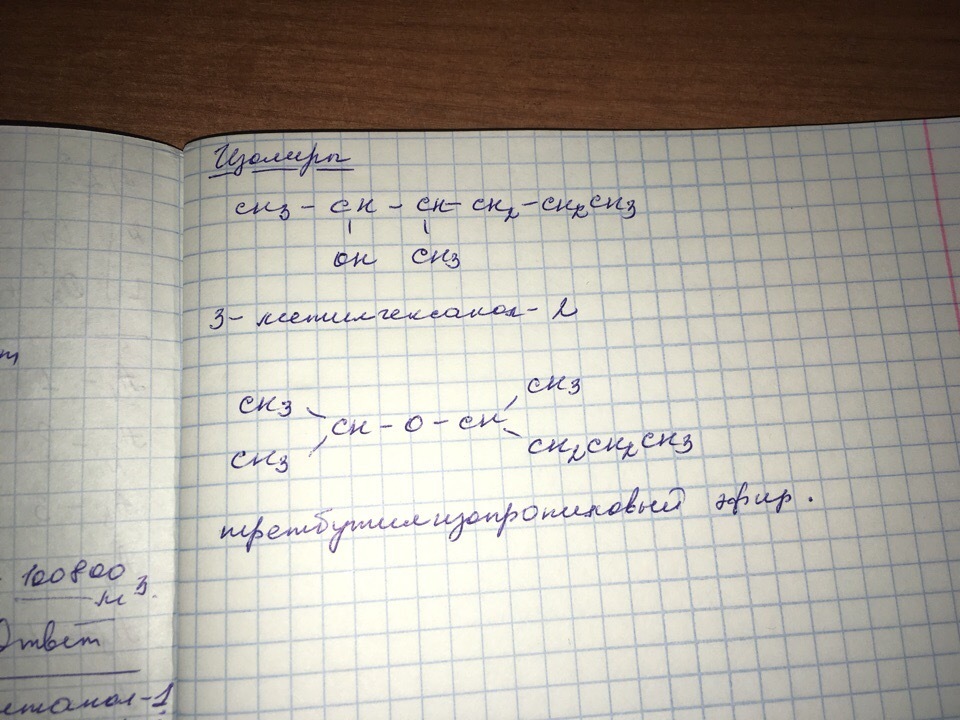 Изомеры
CH3 - CH - CH - CH2 - CH2CH3
OH CH3
3-метилгексанол-2
CH3 CH3
CH - O - CH
CH3 CH2CH2CH3
третбутилизопропиловый эфир.
100800
м3.
Ответ
-1